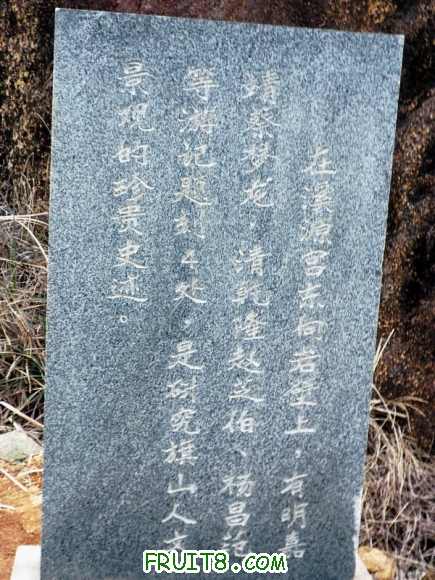 在溪源宫东向岩壁上，有明嘉
靖蔡梦龙，清乾隆赵芝伯、杨昌
等游记题刻4处，是研究旗山人文
景观的珍贵史述。
FRUIT8.COM